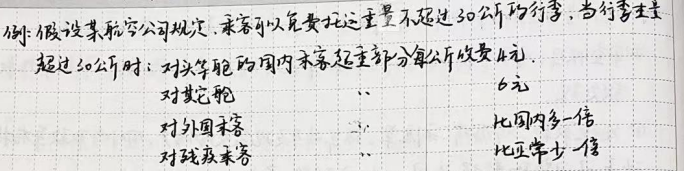 例:假设某航空公司规定,乘客可以免费托运重量不超过30公斤的行李,当行李重量
超过30公斤时:对头等舱的国内乘客超重部分每公斤收费4元.
对其它舱 〃 6元
对外国乘客 〃 比国内多一倍
对残疾乘客 〃 比正常少一倍